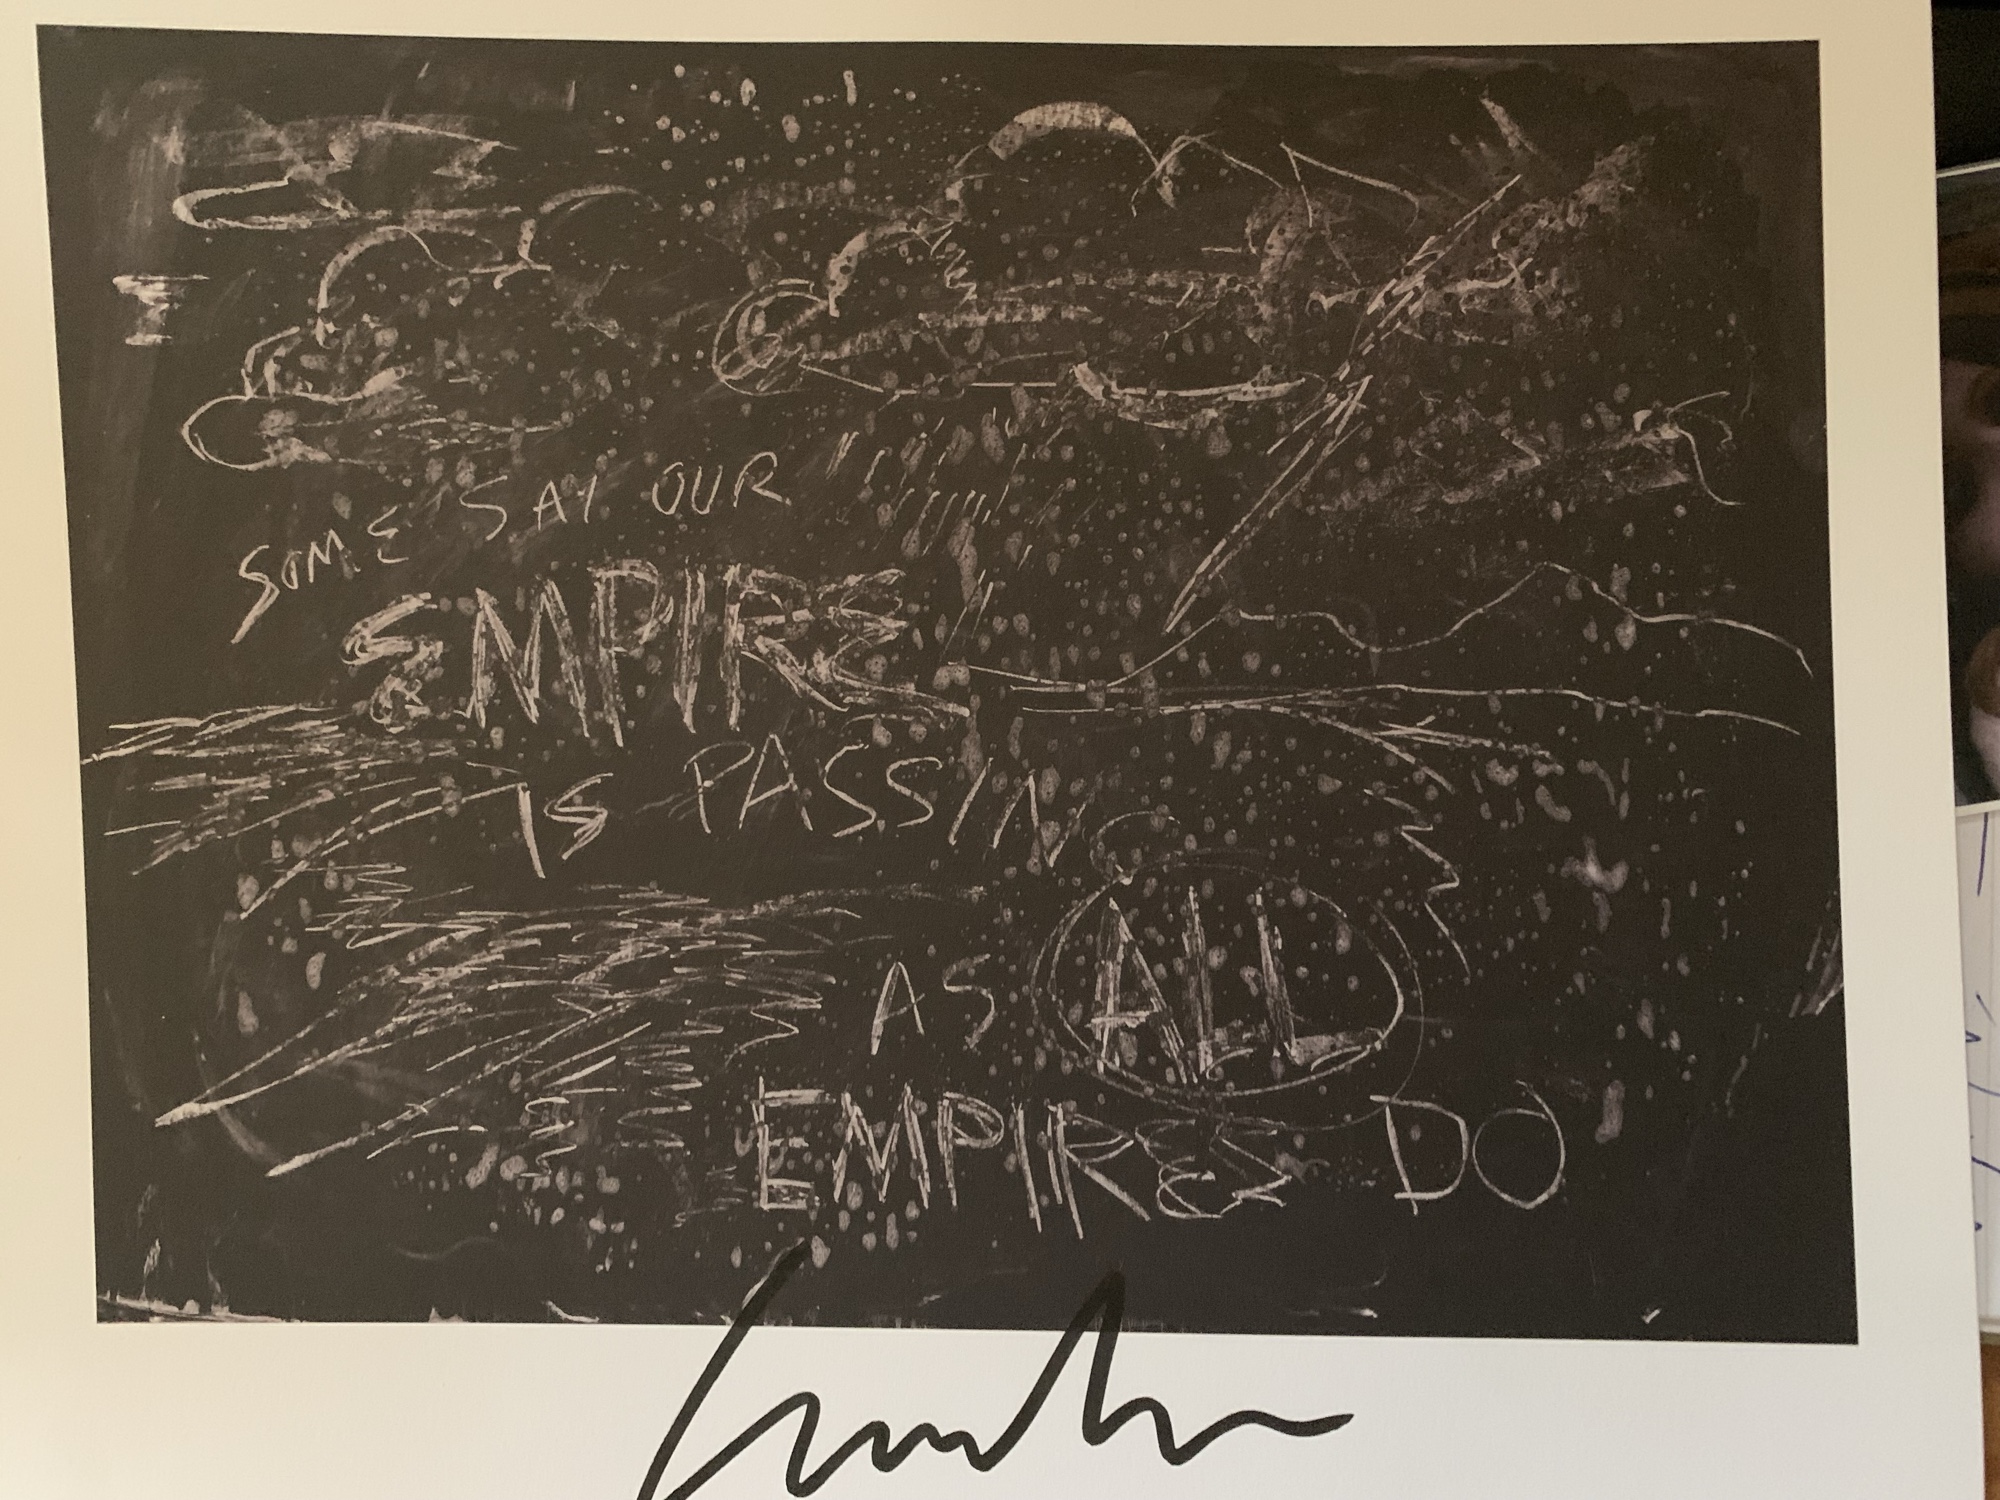 SOME SAY OUR
EMPIRE
IS PASSIN
AS ALL
EMPIRES DO